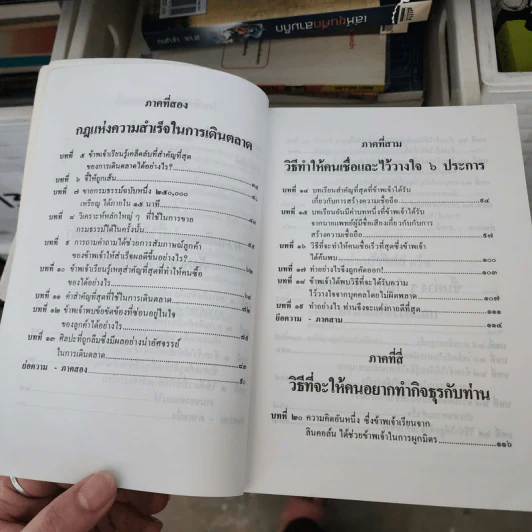 ภาคที่สอง
กฎแห่งความสำเร็จในการเดินตลาด
บทที่ ๕ ข้าพเจ้าเรียนรู้เคล็ดลับที่สำคัญที่สุด
ของการเดินตลาดได้อย่างไร?
บทที่ ๖ จี้ให้ถูกเส้น
บทที่ ๗ ขายกรมธรรม์ฉบับหนึ่ง ๒๕๐,๐๐๐
เหรียญ ได้ภายใน ๑๕ นาที
บทที่ ๘ วิเคราะห์หลักใหญ่ ๆ ที่ใช้ในการขาย
กรมธรรม์ได้ในครั้งนั้น
บทที่ ๙ การถามคำถามได้ช่วยการสัมภาษณ์ลูกค้า
ของข้าพเจ้าให้สำเร็จผลดีขึ้นอย่างไร?
บทที่ ๑๐ ข้าพเจ้าเรียนรู้เหตุสำคัญที่สุดที่ทำให้คนซื้อ
ของได้อย่างไร
บทที่ ๑๑ คำสำคัญที่สุดที่ใช้ในการเดินตลาด
บทที่ ๑๒ ข้าพเจ้าพบข้อขัดข้องที่ซ่อนอยู่ในใจ
ของลูกค้าได้อย่างไร
บทที่ ๑๓ ศิลปะที่ถูกลืมซึ่งมีผลอย่างน่าอัศจรรย์
ในการเดินตลาด
ย่อความ - ภาคสอง
ภาคที่สาม
วิธีทำให้คนเชื่อและไว้วางใจ ๖ ประการ
บทที่ ๑๔ บทเรียนสำคัญที่สุดที่ข้าพเจ้าได้รับ
เกี่ยวกับการสร้างความเชื่อถือ ๙๔
บทที่ ๑๕ บทเรียนอันมีค่าบทหนึ่งที่ข้าพเจ้าได้รับ
จากนายแพทย์ผู้มีชื่อเสียงเกี่ยวกับกับการ
สร้างความเชื่อถือ ๙๗
บทที่ ๑๖ วิธีที่จะทำให้คนเชื่อเร็วที่สุดซึ่งข้าพเจ้า
ได้ค้นพบ ๑๐๐
บทที่ ๑๗ ทำอย่างไรจึงถูกคัดออก! ๑๐๓
บทที่ ๑๘ ข้าพเจ้าได้พบวิธีที่จะได้รับความ
ไว้วางใจจากบุคคลโดยไม่ผิดพลาด ๑๐๗
บทที่ ๑๙ ทำอย่างไร ท่านจึงจะแต่งกายดีที่สุด ๑๑๑
ย่อความ - ภาคสาม ๑๑๔
ภาคที่สี่
วิธีที่จะให้คนอยากทำกิจธุรกับท่าน
บทที่ ๒๐ ความคิดอันหนึ่ง ซึ่งข้าพเจ้าเรียนจาก
ลินคอล์น ได้ช่วยข้าพเจ้าในการผูกมิตร ๑๑๖